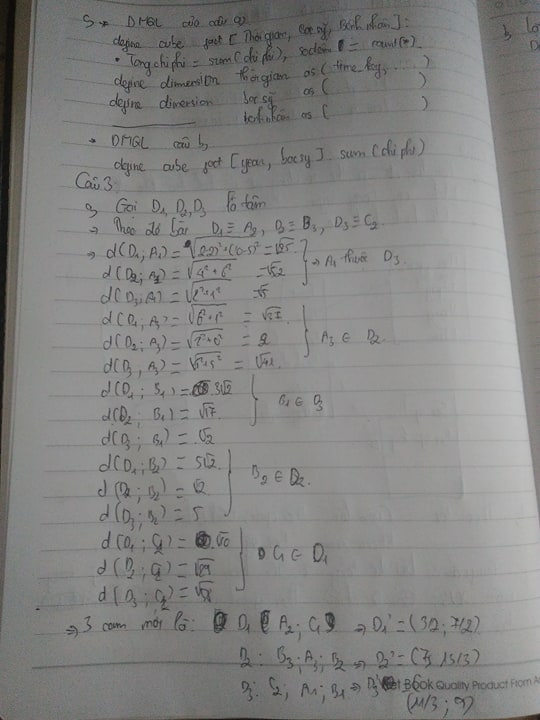 DMQL của câu a)
define cube fact [Thời gian, bác sỹ, bệnh nhân]:
• Tong chi phí = sum(chi phí), = count(*)
define dimension thời gian as (time_key, ....)
define dimension bác sỹ as ( )
bệnh nhân as ( )
→ DMQL câu b,
define cube fact [year, bacsy] sum (chi phí)
Câu 3:
a, Gọi D1, D2, D3 là tâm
→ Theo đó D1 ≡ A2, D2 ≡ B3, D3 ≡ C2
→ d(D1; A1) = √(2-2)²+(10-5)² = √25
d(D2; A1) = = √52
d(D3; A1) = = √5
→ A1 thuộc D3.
d(D1; A3) = √6²+1² = √37
d(D2; A3) = = 2
d(D3, A3) = = √41
A3 ∈ D2.
d(D1; B1) = 3√2
d(D2; B1) = √17
d(D3; B1) = √2
B1 ∈ D3
d(D1; B2) = 5√2
d(D2; B2) = √2
d(D3; B2) = 5
B2 ∈ D2.
d(D1; C1) = √10
d(D2; ) = √29
d(D3; ) =
C1 ∈ D1
→ 3 cụm mới là: D1 A2; C1 → D1' = (3/2; 7/2)
D2: B3; A3; B2 → D2' = (7; 13/3)
D3: C2; A1; B1 →
(11/3; 9)
Book Quality Product From